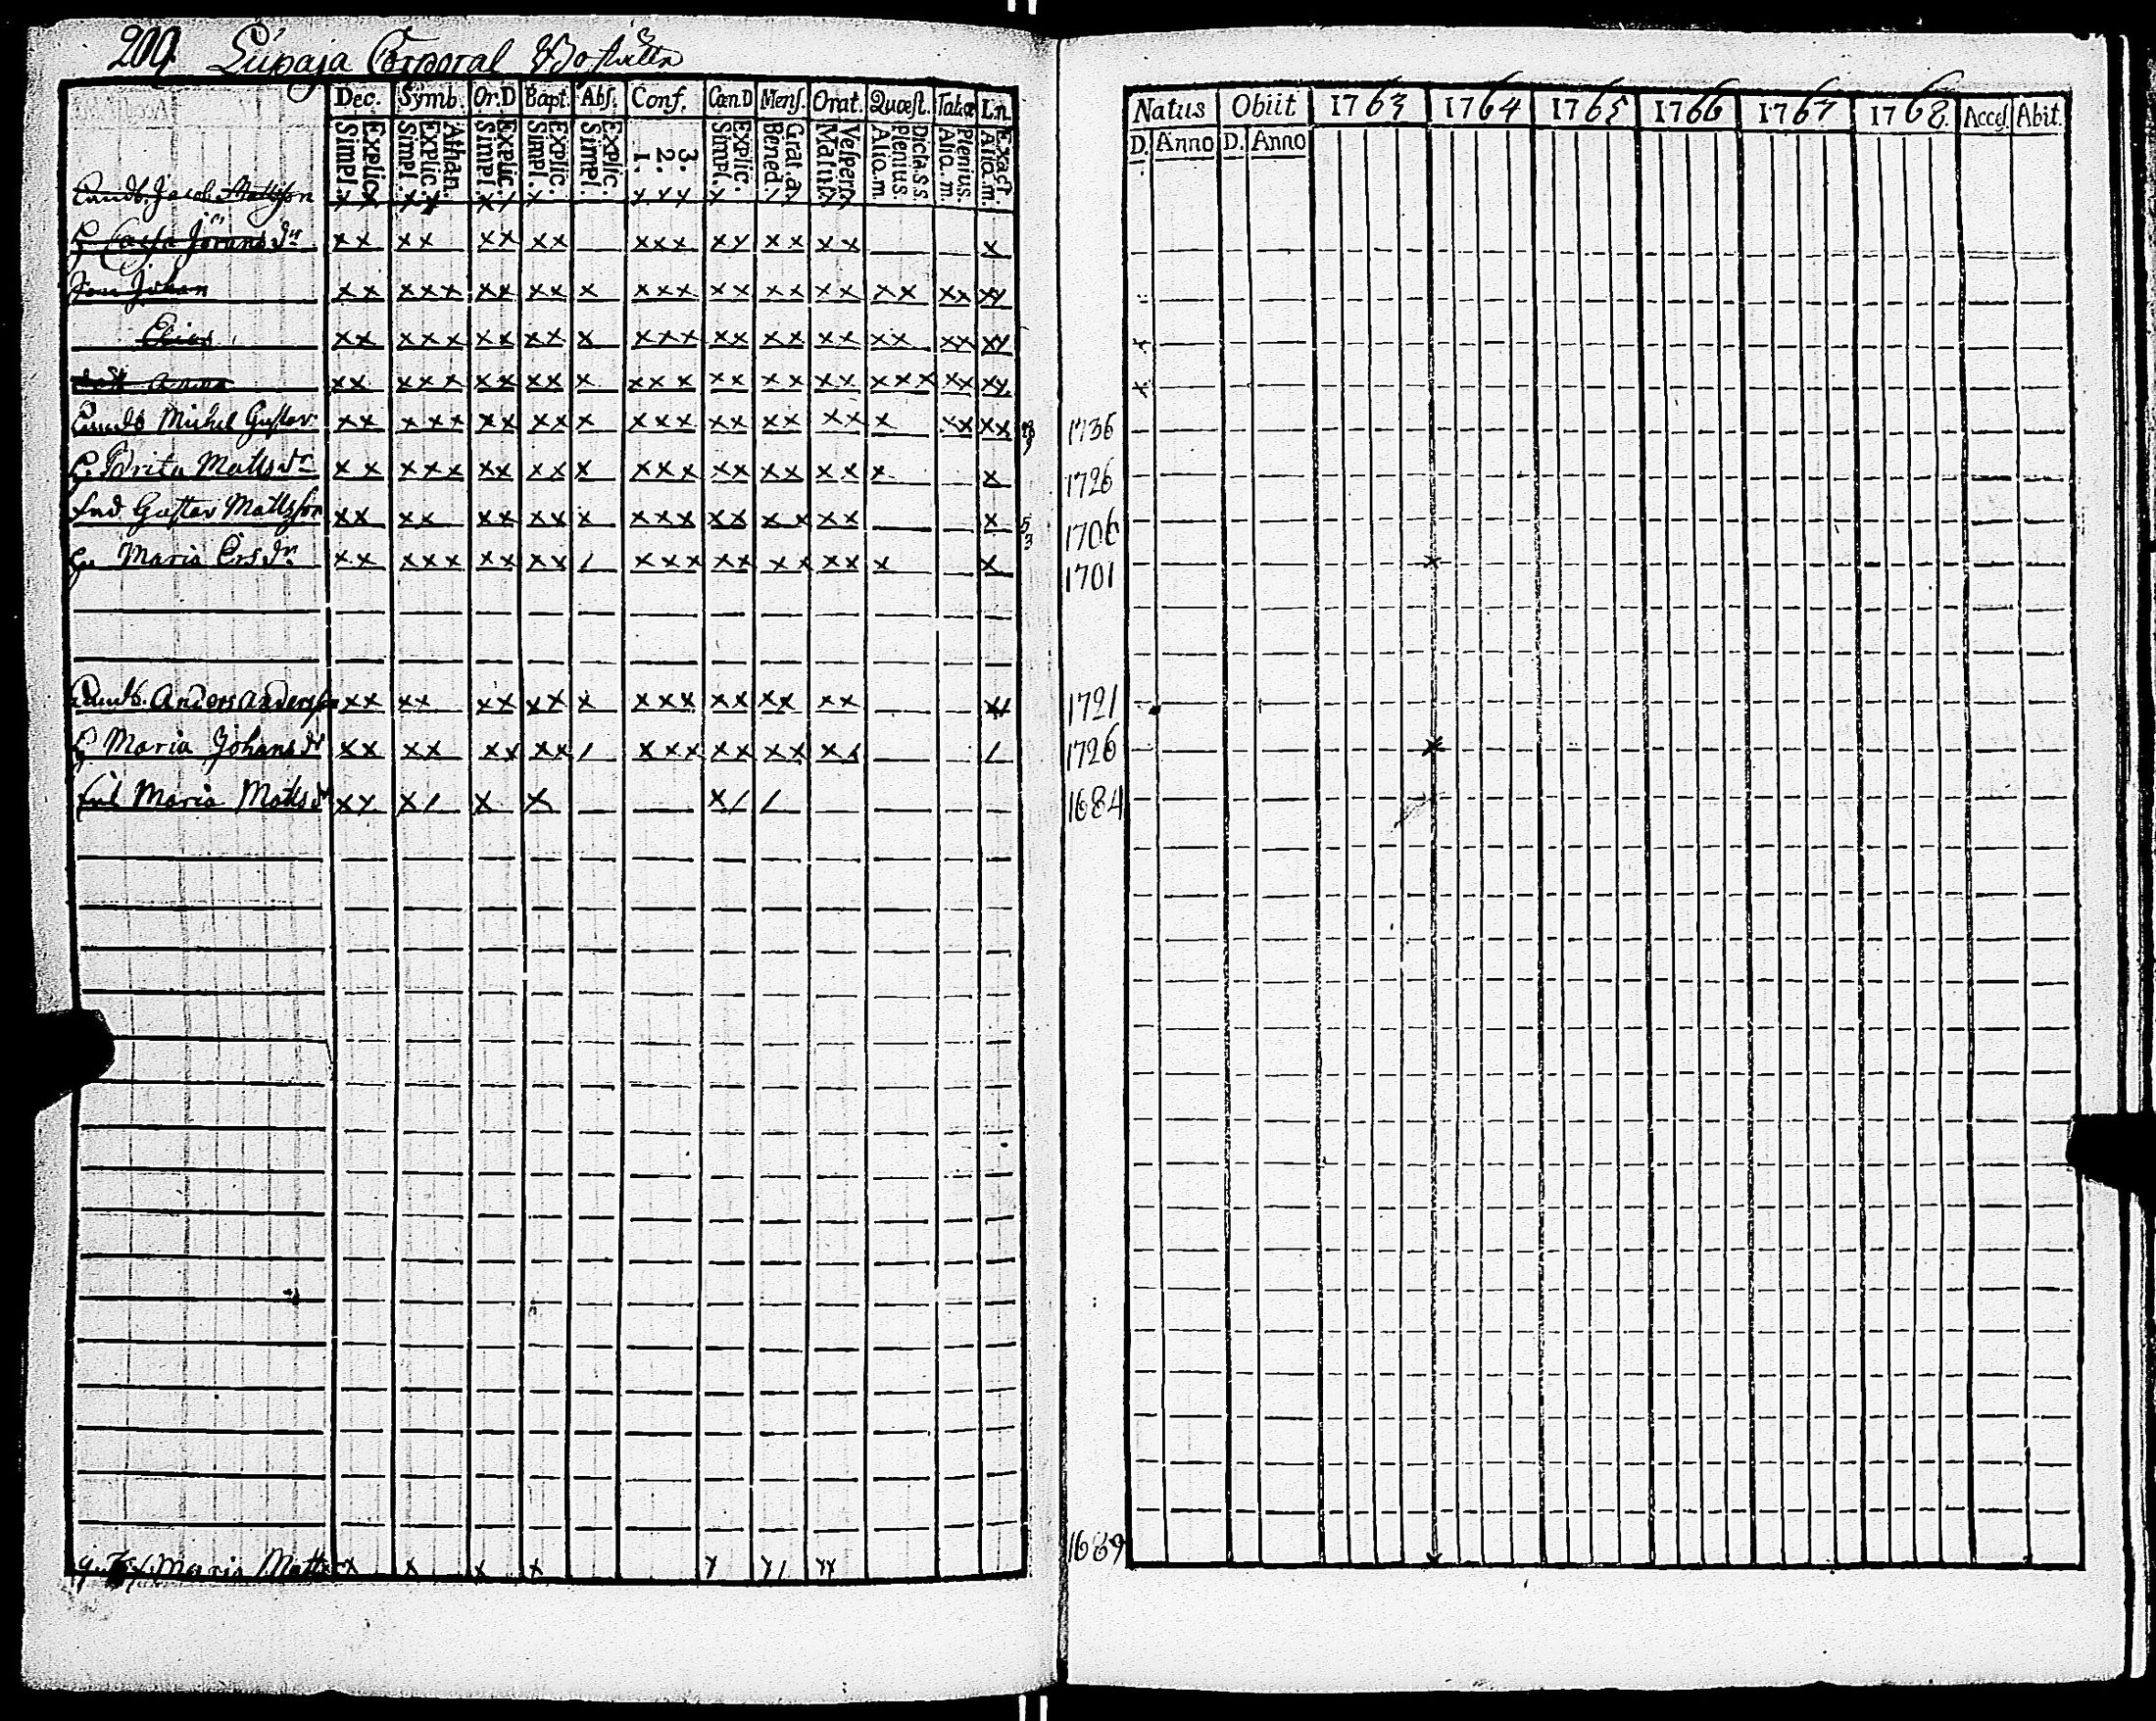 209. Lupaja Corporal Boställe
Dec. Symb. Or.D Bapt. Abs. Conf. Cœn.D Mens. Orat. Quæst. Tabœ Ln.
Simpl. Explic. Simpl. Explic. Athan. Simpl. Explic. Simpl. Explic. Simpl. Explic. 1. 2. 3. Simpl. Explic. Bened. Grat.a Matut. Vesper. Aliq.m Plenius Dicta.s.s Aliq.m Plenius. Aliq.m. Exact.
Jacob Mattsson x x x x x / x x x x x / / x x
H Caisa Jörans dr x x x x x x x x x x x x x x x x x x
Son Johan x x x x x x x x x x x x x x x x x x x x x x x x x
Elias x x x x x x x x x x x x x x x x x x x x x x x x x
Anna x x x x x x x x x x x x x x x x x x x x x x x x x x
Michel Gustav x x x x x x x x x x x x x x x x x x x x x x x x 1736
H Brita Matts dr x x x x x x x x x x x x x x x x x x x x x 1726
Ind Gustav Mattsson x x x x x x x x x x x x x x x x x x x 5/3 1706
H Maria Ers dr x x x x x x x x x / x x x x x x x x x x x 1701
Anders Andersson x x x x x x x x x x x x x x x x x x x 1721
H Maria Johans dr x x x x x x x x / x x x x x x x x x / 1726
Inh Maria Matts dr x x x / x x x / / 1684
Maria Matts x x x x x x / x x 1689
Natus Obiit 1763 1764 1765 1766 1767 1768 Acces. Abit.
D. Anno D. Anno